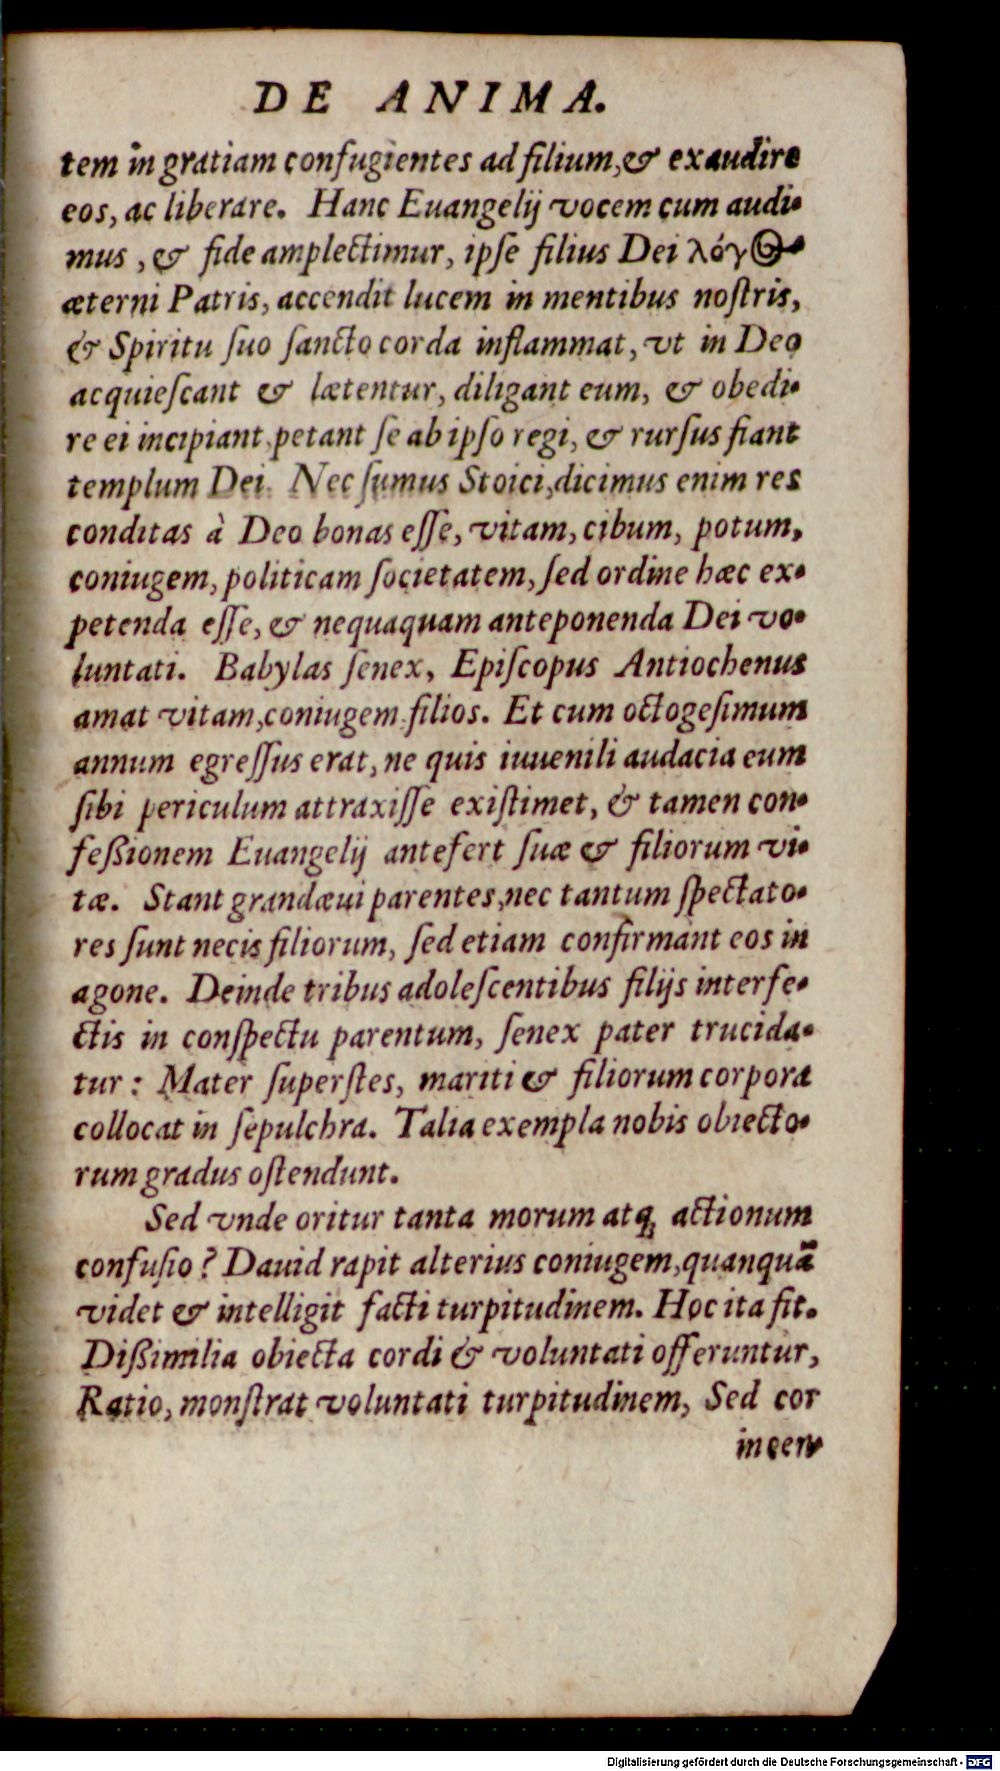 DE ANIMA.
tem in gratiam confugientes ad filium, & exaudire
eos, ac liberare. Hanc Euangelij vocem cum audi-
mus, & fide amplectimur, ipſe filius Dei λόγος
æterni Patris, accendit lucem in mentibus noſtris,
& Spiritu ſuo ſancto corda inflammat, vt in Deo
acquieſcant & lætentur, diligant eum, & obedi-
re ei incipiant, petant ſe ab ipſo regi, & rurſus fiant
templum Dei. Nec ſumus Stoici, dicimus enim res
conditas à Deo bonas eſſe, vitam, cibum, potum,
coniugem, politicam ſocietatem, ſed ordine hæc ex-
petenda eſſe, & nequaquam anteponenda Dei vo-
luntati. Babylas ſenex, Epiſcopus Antiochenus
amat vitam, coniugem, filios. Et cum octogeſimum
annum egreſſus erat, ne quis iuuenili audacia eum
ſibi periculum attraxiſſe exiſtimet, & tamen con-
feßionem Euangelij antefert ſuæ & filiorum vi-
tæ. Stant grandæui parentes, nec tantum ſpectato-
res ſunt necis filiorum, ſed etiam confirmant eos in
agone. Deinde tribus adoleſcentibus filijs interfe-
ctis in conſpectu parentum, ſenex pater trucida-
tur: Mater ſuperſtes, mariti & filiorum corpora
collocat in ſepulchra. Talia exempla nobis obiecto-
rum gradus oſtendunt.
Sed vnde oritur tanta morum atq; actionum
confuſio? Dauid rapit alterius coniugem, quanquã
videt & intelligit facti turpitudinem. Hoc ita fit.
Dißimilia obiecta cordi & voluntati offeruntur,
Ratio, monſtrat voluntati turpitudinem, Sed cor
incen-
Digitalisierung gefördert durch die Deutsche Forschungsgemeinschaft - DFG